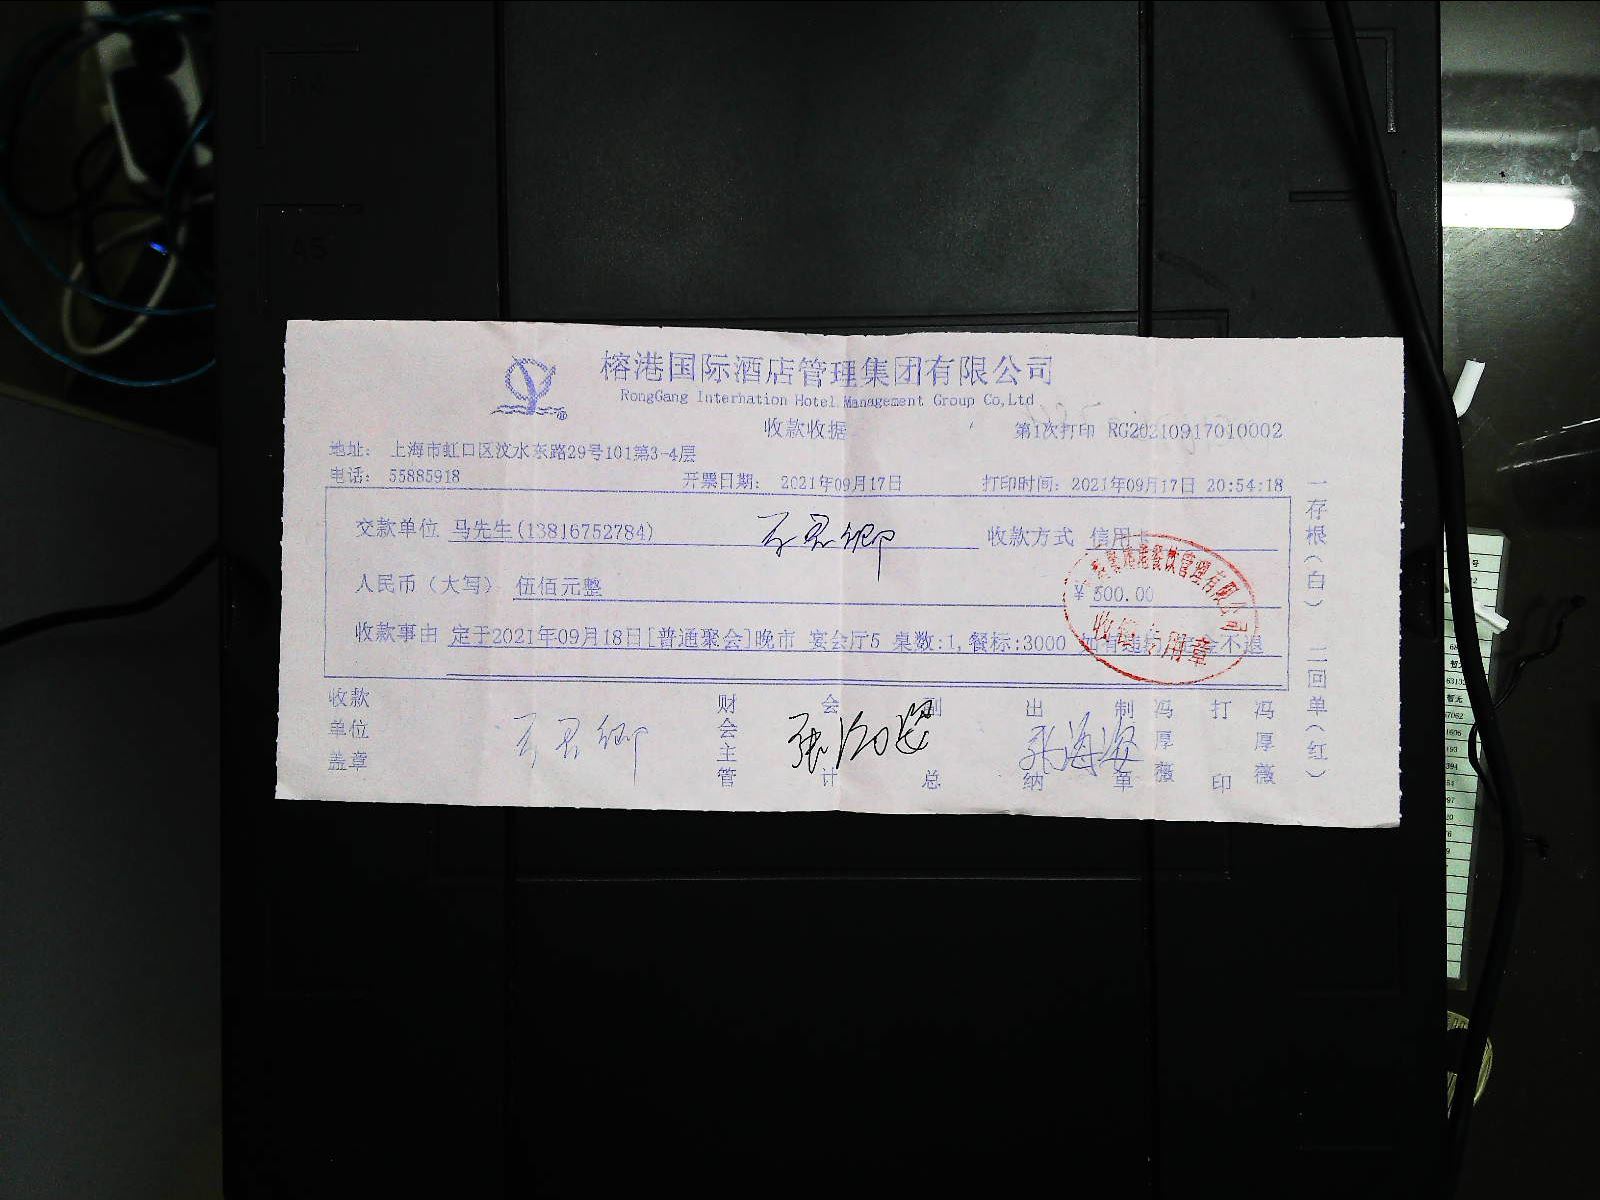 榕港国际酒店管理集团有限公司
RongGang Internation Hotel Management Group Co,Ltd
收款收据
第1次打印 RG20210917010002
地址: 上海市虹口区汶水东路29号101第3-4层
电话: 55885918 开票日期: 2021年09月17日 打印时间: 2021年09月17日 20:54:18
交款单位 马先生(13816752784) 收款方式 信用卡
人民币(大写) 伍佰元整 ¥ 500.00
收款事由 定于2021年09月18日[普通聚会]晚市 宴会厅5 桌数:1,餐标:3000 如有违约 定金不退
港餐饮管理有限公司
收 专用章
收款单位盖章
财会主管
会计
副总
出纳
张海安
制单
冯厚薇
打印
冯厚薇
一存根(白) 二回单(红)
A5